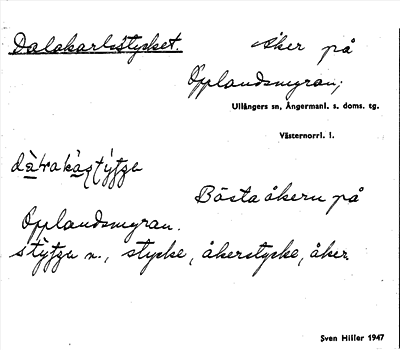 Dalakarlstycket.
Åker på
Opplandsmyran;
Ullångers sn, Ångermanl. s. doms. tg.
Västernorrl. l.
Bästa åkern på
Opplandsmyran.
n., stycke, åkerstycke, åker
Sven Hiller 1947